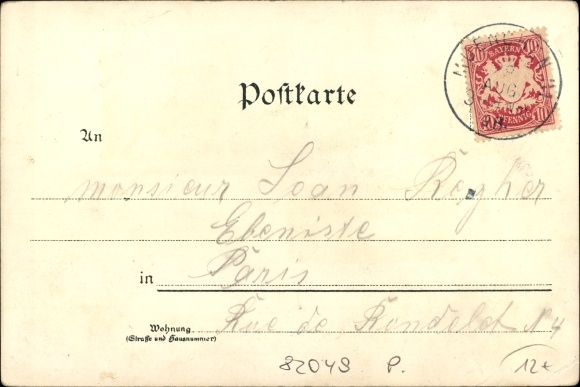 BAYERN
10 10
PFENNIG 10
AUG
Postkarte
An
monsieur Jean
Ebeniste
in Paris
Wohnung. Rue de Rondelet N 4
(Straße und Hausnummer)
82049 P. 12€